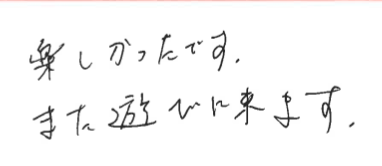 楽しかったです.
また遊びに来ます.